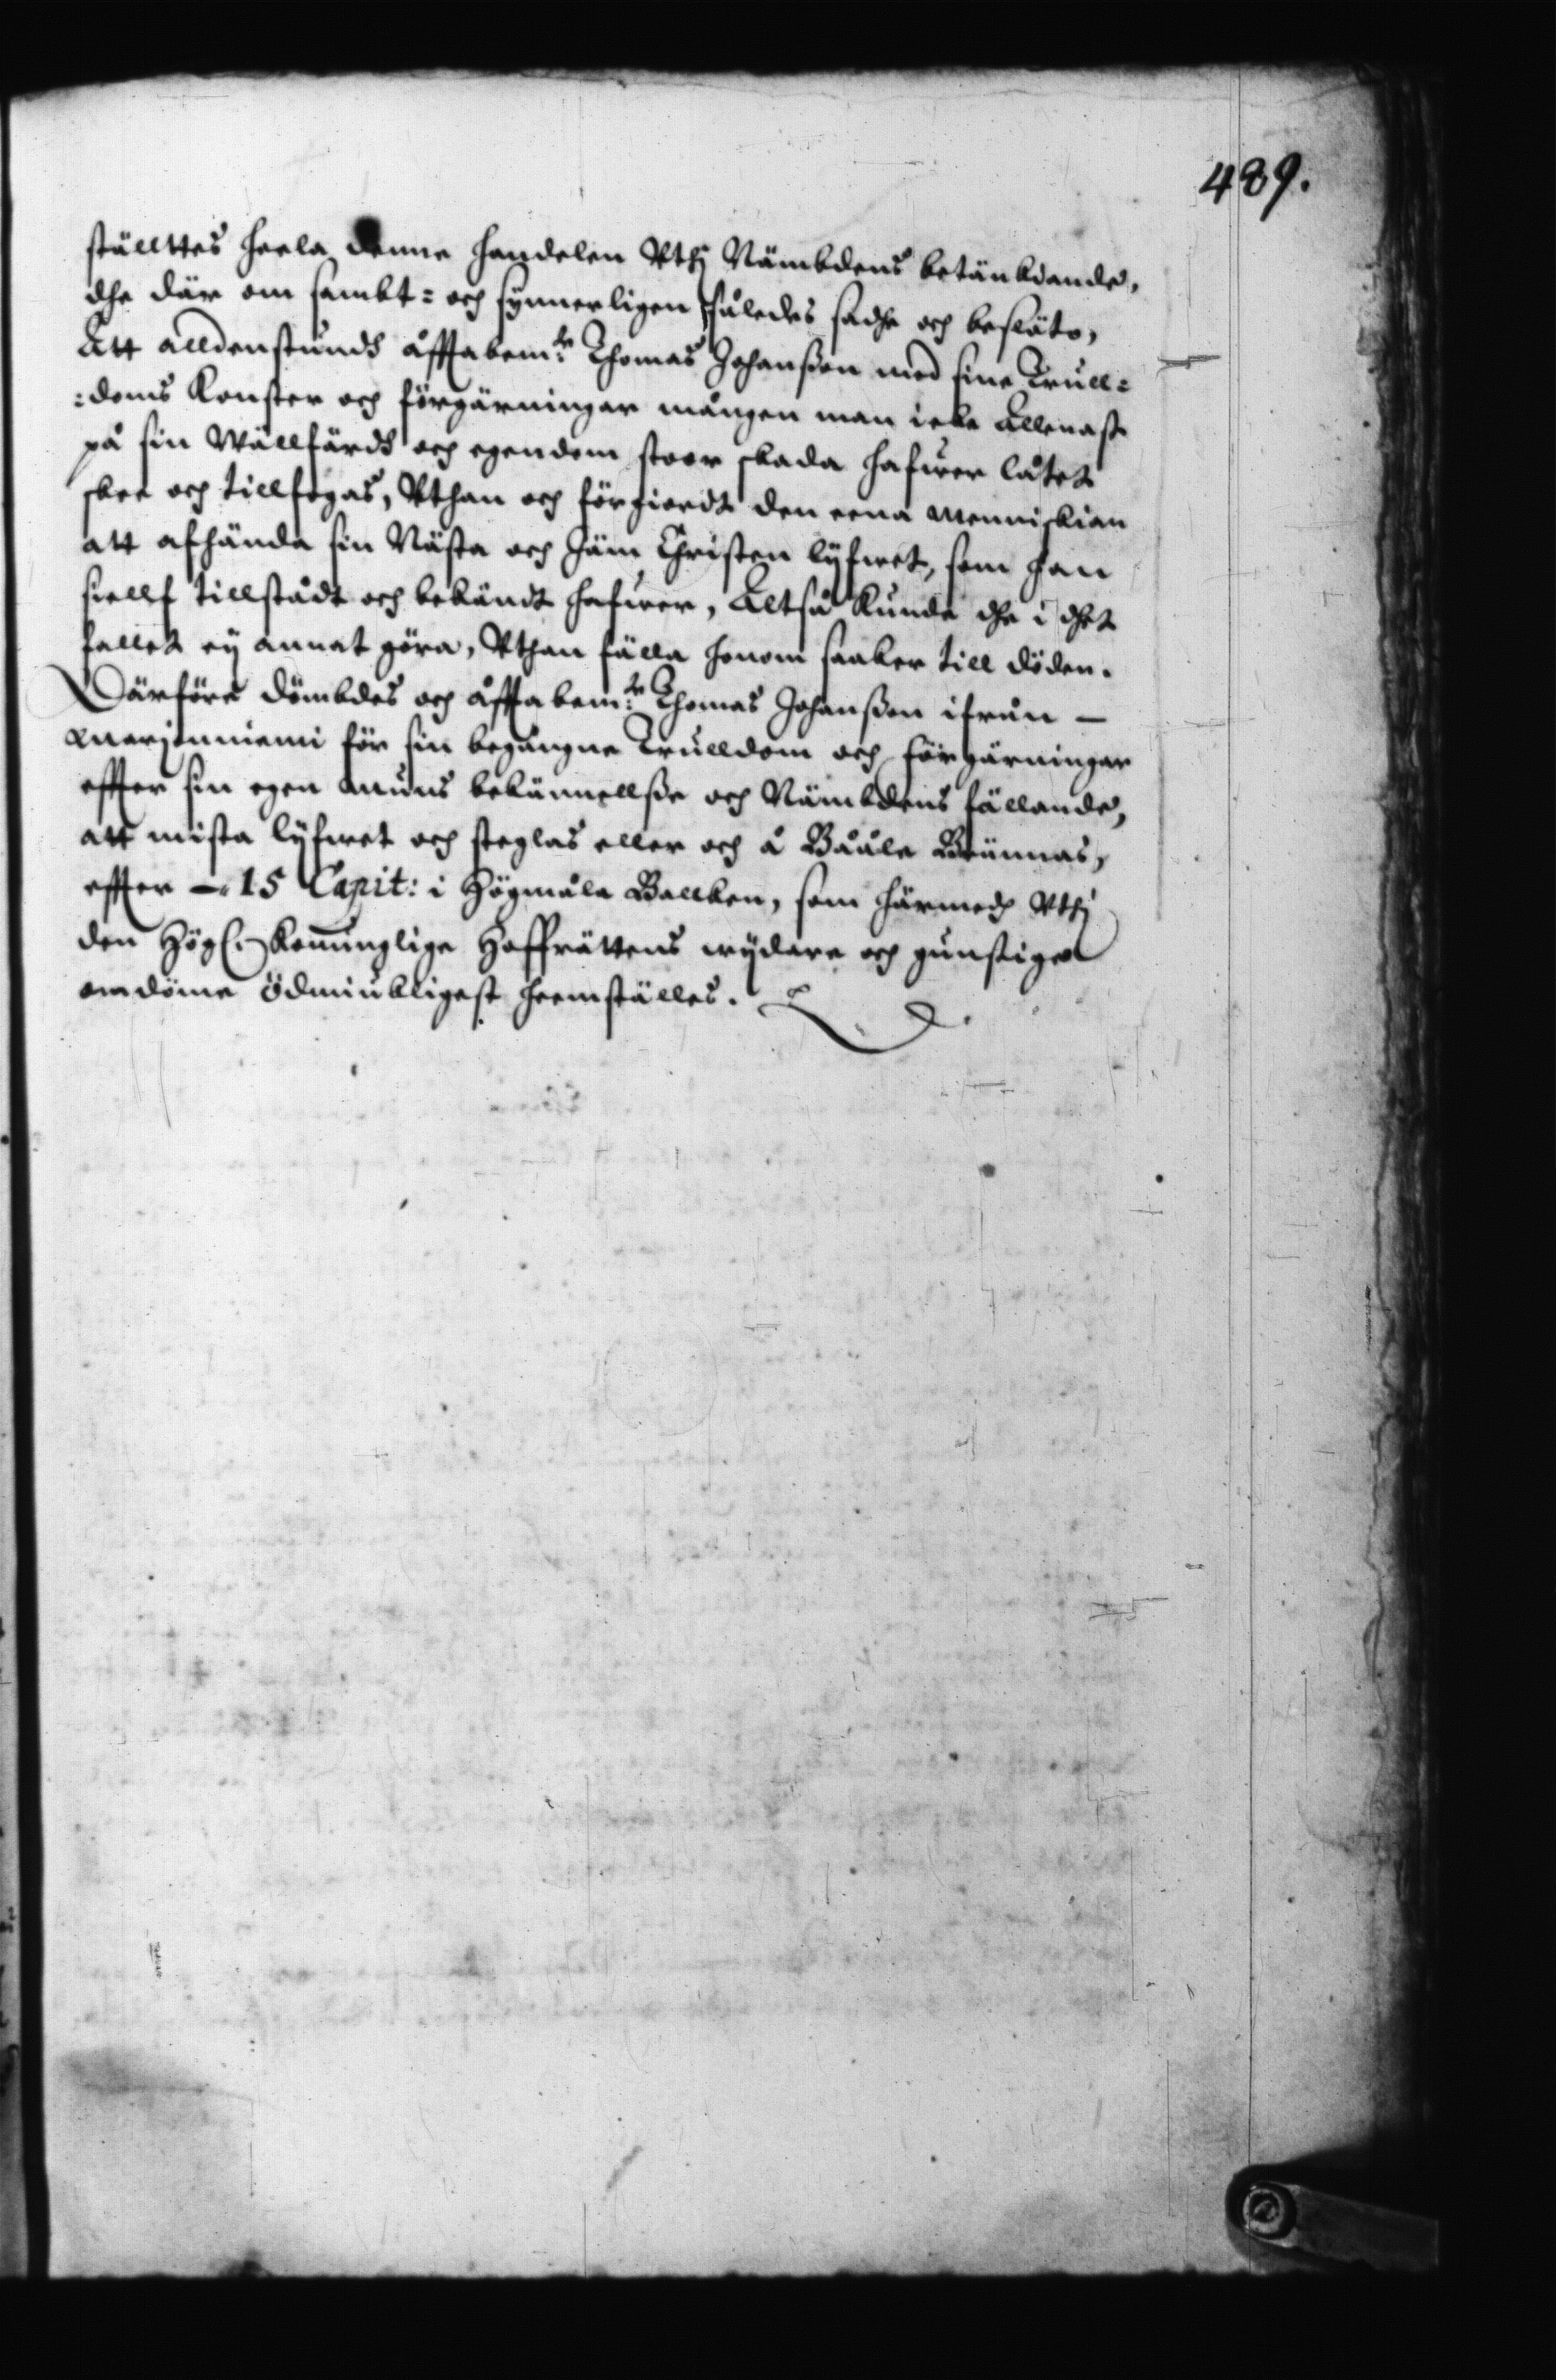 489.
ställttes heela denne handelen Uthj Nämbdens betänkiande,
dhe där om sambt= och synnerligen således sadhe och besluto,
Att alldenstundh åfftabem:te Thomas Johanßon med sine Trull=
=doms Konster och förgärningar mången man icke Allenast
på sin Wällfärdh och egendom stoor skada hafwer låtet
skee och tillfogas, Uthan och förgiordt den eena Menniskian
att afhända sin Nästa och Jäm Christen lÿfwet, som han
siellf tillstådt och bekändt hafwer, Altså Kunde dhe i dhet
fallet eÿ annat göra, Uthan fälla honom saaker till döden.
Därföre dömbdes och åfftabem:te Thomas Johanßon ifrån –
Marjonniemi för sin begångne Trulldom och förgärningar
effter sin egen Muns bekännellße och Nämbdens fällande,
att mista lÿfwet och steglas eller och å Bååle Brännas,
effter – 15 Capit: i Högmåla Ballken, som härmedh Uthj
den Högl. Konunglige Hoffrättens wÿdare och gunstige
omdöme ödmiukligest heemställes.